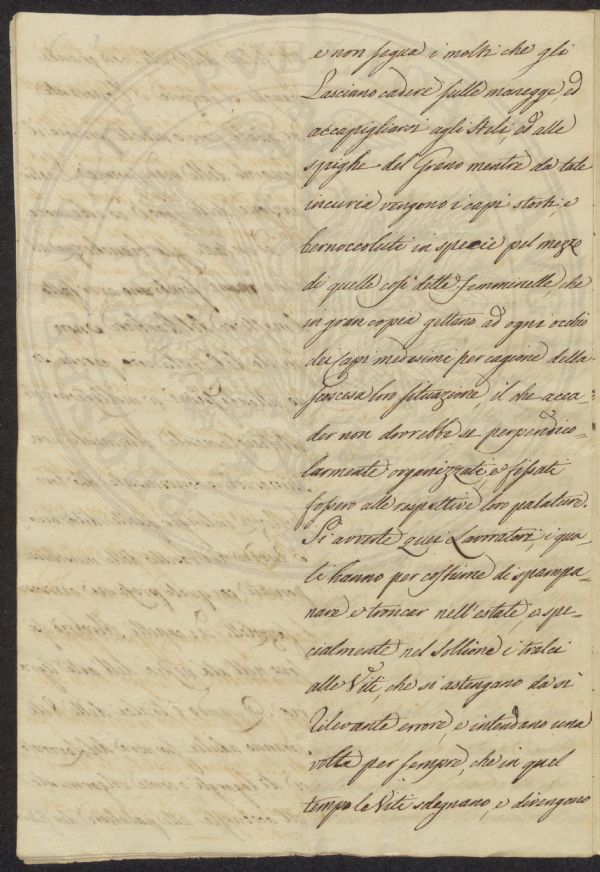 e non segua i molti che gli
Lasciano cadere sulle maregge, ed
accapigliarsi agli Steli, ed alle
spighe del Grano mentre da tale
incuria vengono i capi storti, e
bernoccoluti in specie pel mezzo
di quelle così dette femminelle, che
in gran copia gettano ad ogni occhio
dei Capi medesimi per cagione della
loro situazione, il che acca-
der non dovrebbe se perpendico-
larmente organizzati, e fissati
fossero alle respettive loro palature.
Si avverte quei Lavoratori, i qua-
li hanno per costume di spampa-
nare e troncar nell'estate, e spe-
cialmente nel Sollione i tralci
alle Viti, che si astengano da sì
rilevante errore, e intendano una
volta per sempre, che in quel
tempo le Viti sdegnano, e divengono